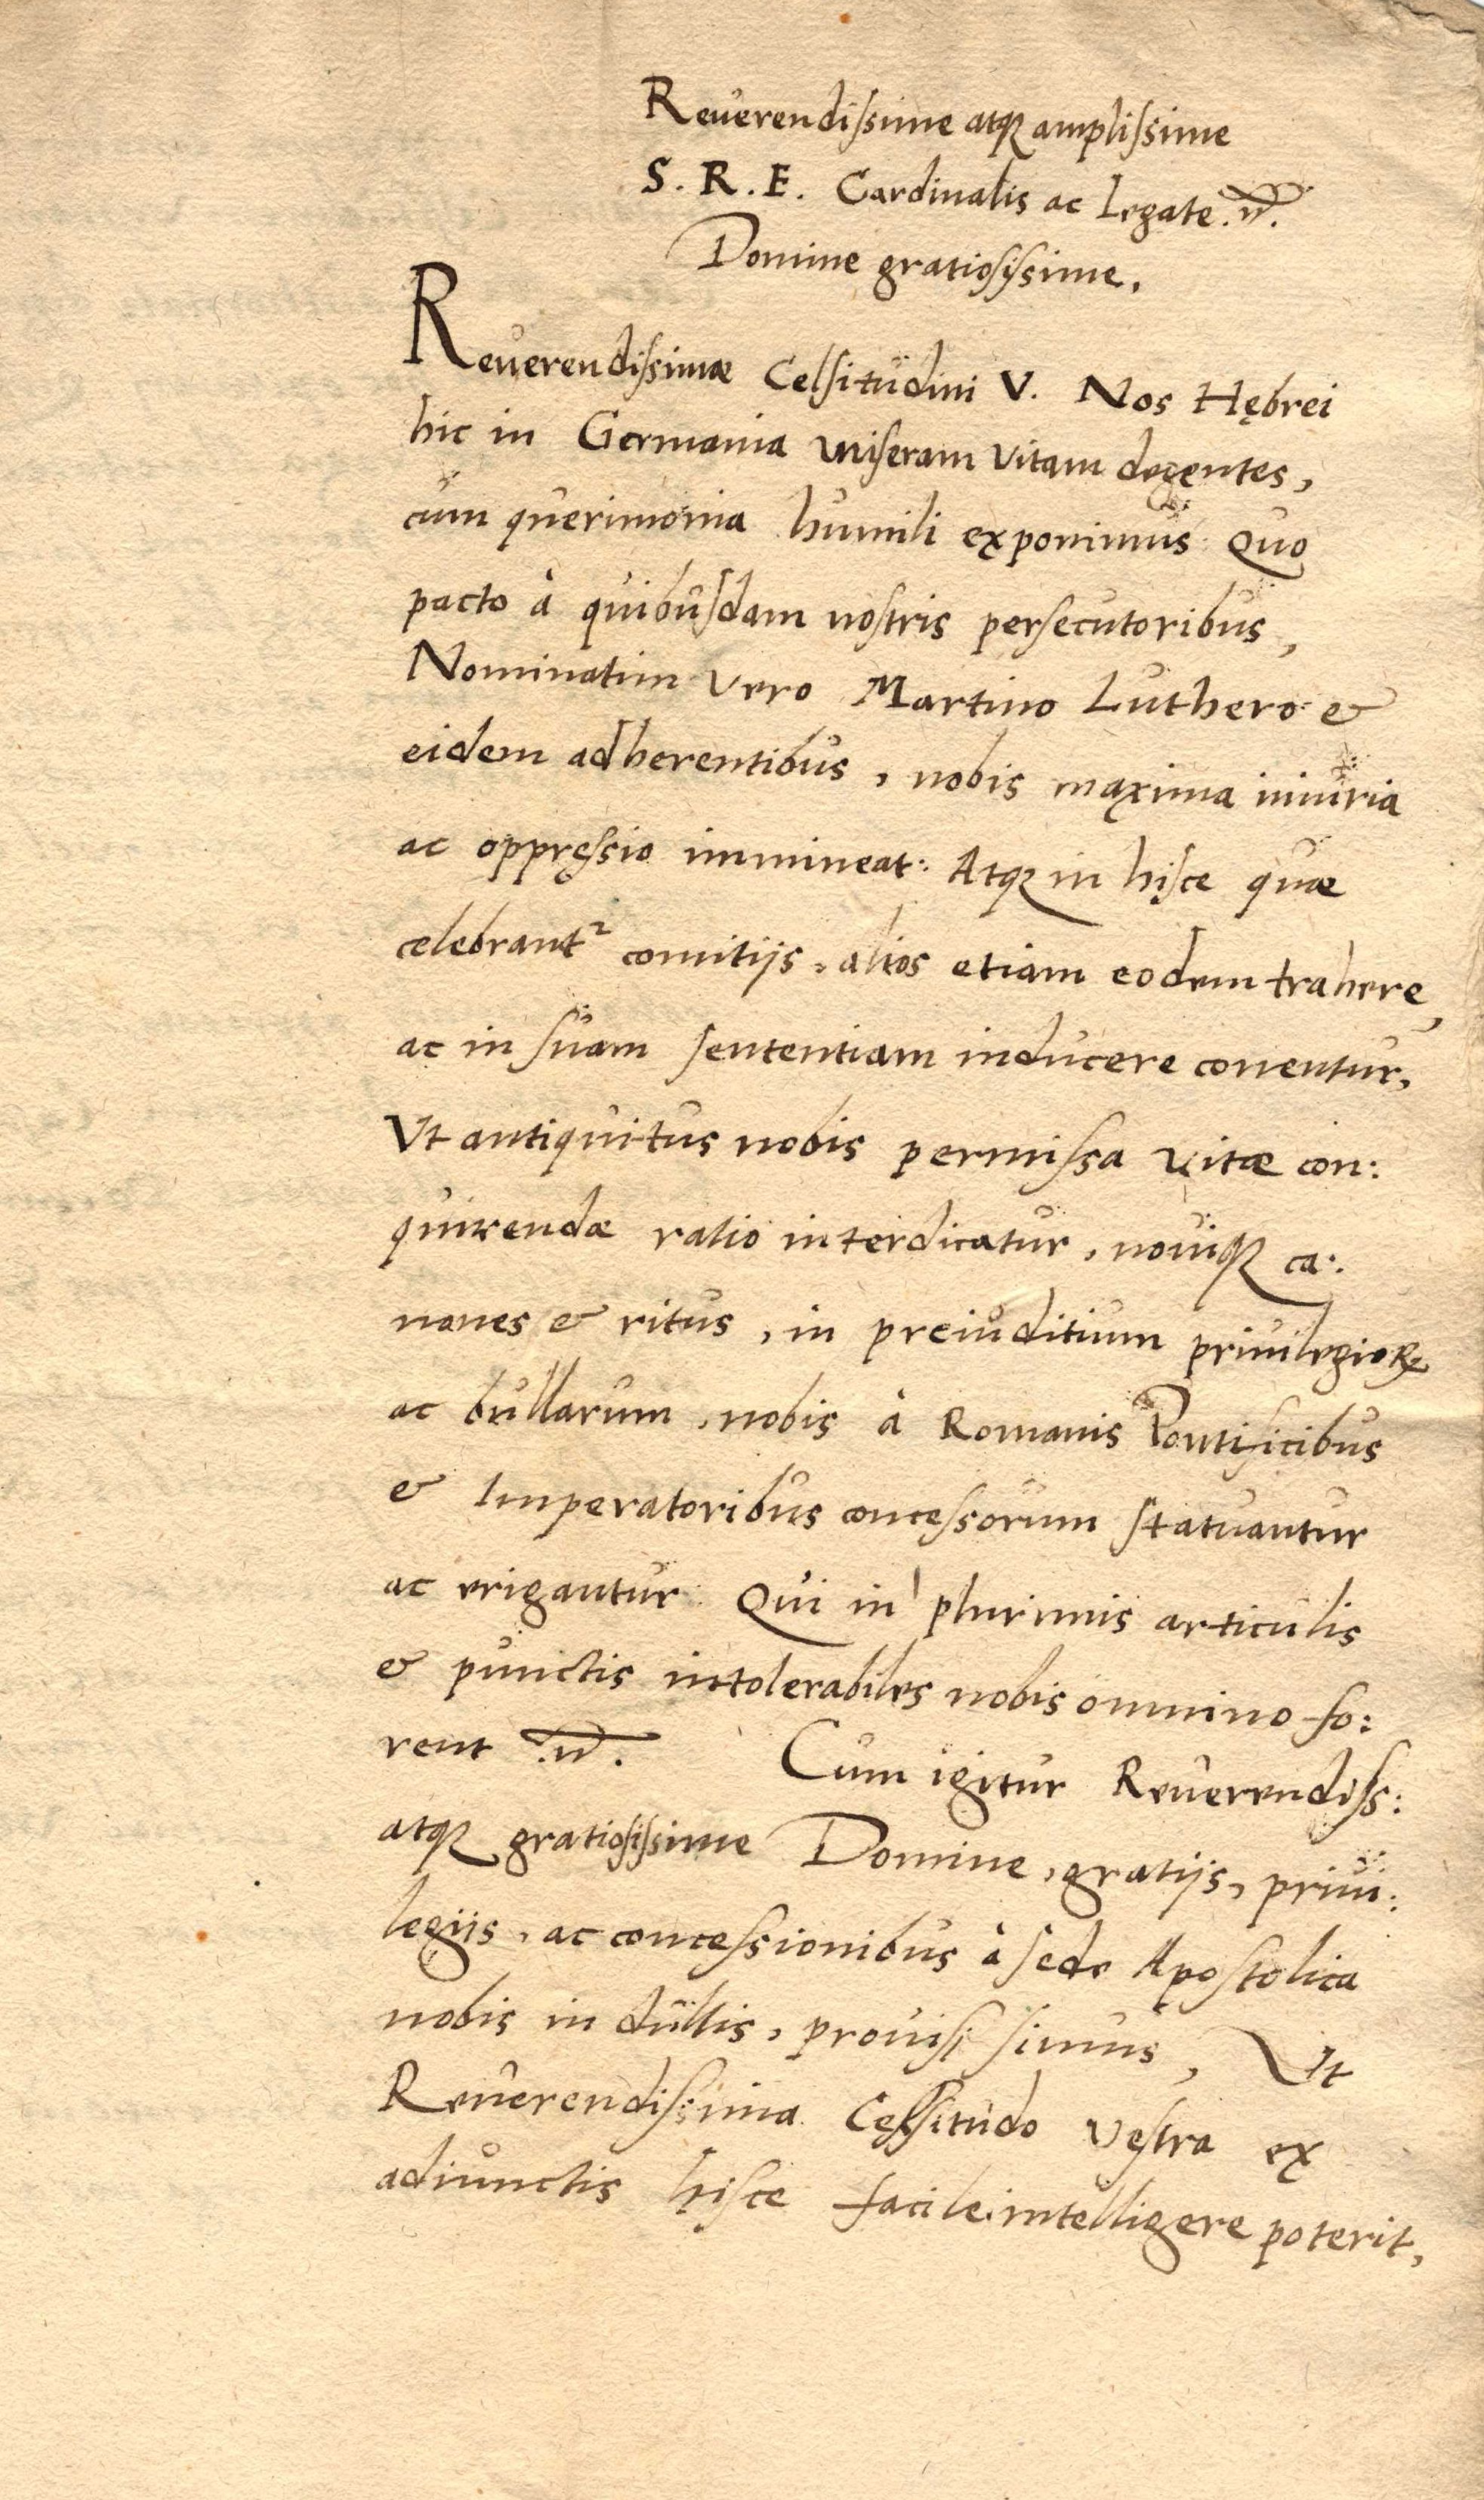 Reuerendissime atq amplissime
S. R. E. Cardinalis ac Legate.
Domine gratiosissime.
Reuerendissimæ Celsitudini V. Nos Hębrei
hic in Germania miseram vitam degentes,
cum querimonia humili exponimus: Quo
pacto à quibusdam nostris persecutoribus,
Nominatim vero Martino Luthero &
eidem adherentibus, nobis maxima iniuria
ac oppressio immineat: Atq in hisce quæ
celebrant² comitijs, alios etiam eodem trahere,
ac in suam sententiam inducere conentur,
Vt antiquitus nobis permissa vitæ con:
quirendæ ratio interdicatur, nouiq ca:
nones & ritus, in preiuditium priuilegioꝝ
ac bullarum, nobis à Romanis Pontificibus
& Imperatoribus concessorum statuantur
ac erigantur: Qui in plurimis articulis
& punctis intolerabiles nobis omnino fo:
rent Cum igitur Reuerendiss:
atq gratiosissime Domine, gratijs, priui:
legiis, ac concessionibus à sede Apostolica
nobis indultis, prouisi simus, Vt
Reuerendissima Celsitudo Vestra ex
adiunctis hisce facile intelligere poterit,